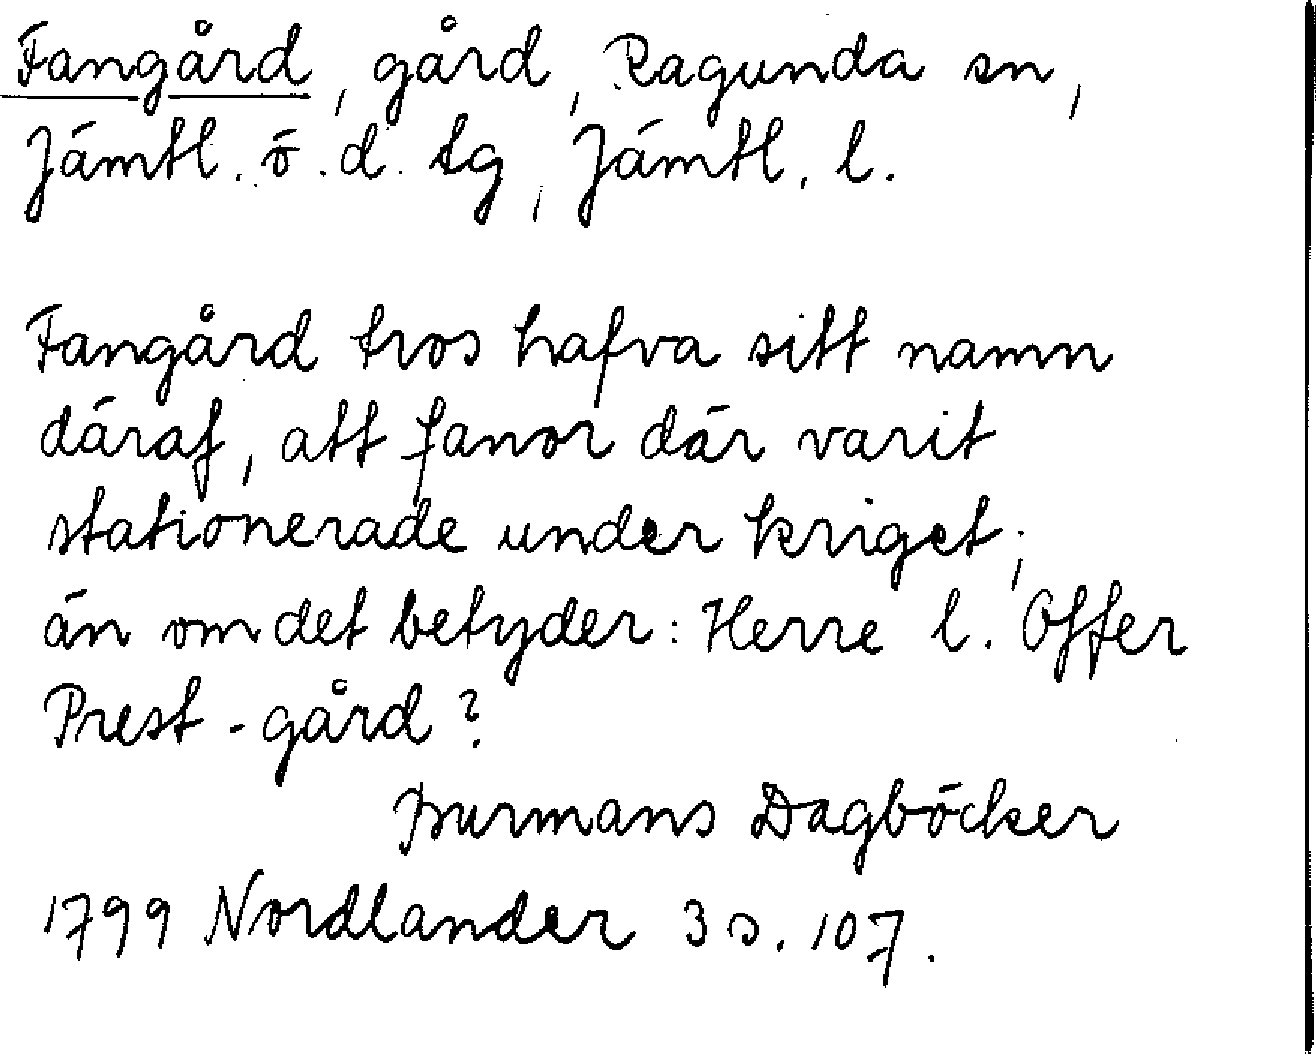 Fangård, gård, Ragunda sn,
Jämtl. ö. d. tg, Jämtl. l.
Fangård tros hafva sitt namn
däraf, att fanor där varit
stationerade under kriget;
än om det betyder: Herre l. Offer
Prest-gård?
Burmans Dagböcker
1799 Nordlander 3 s. 107.